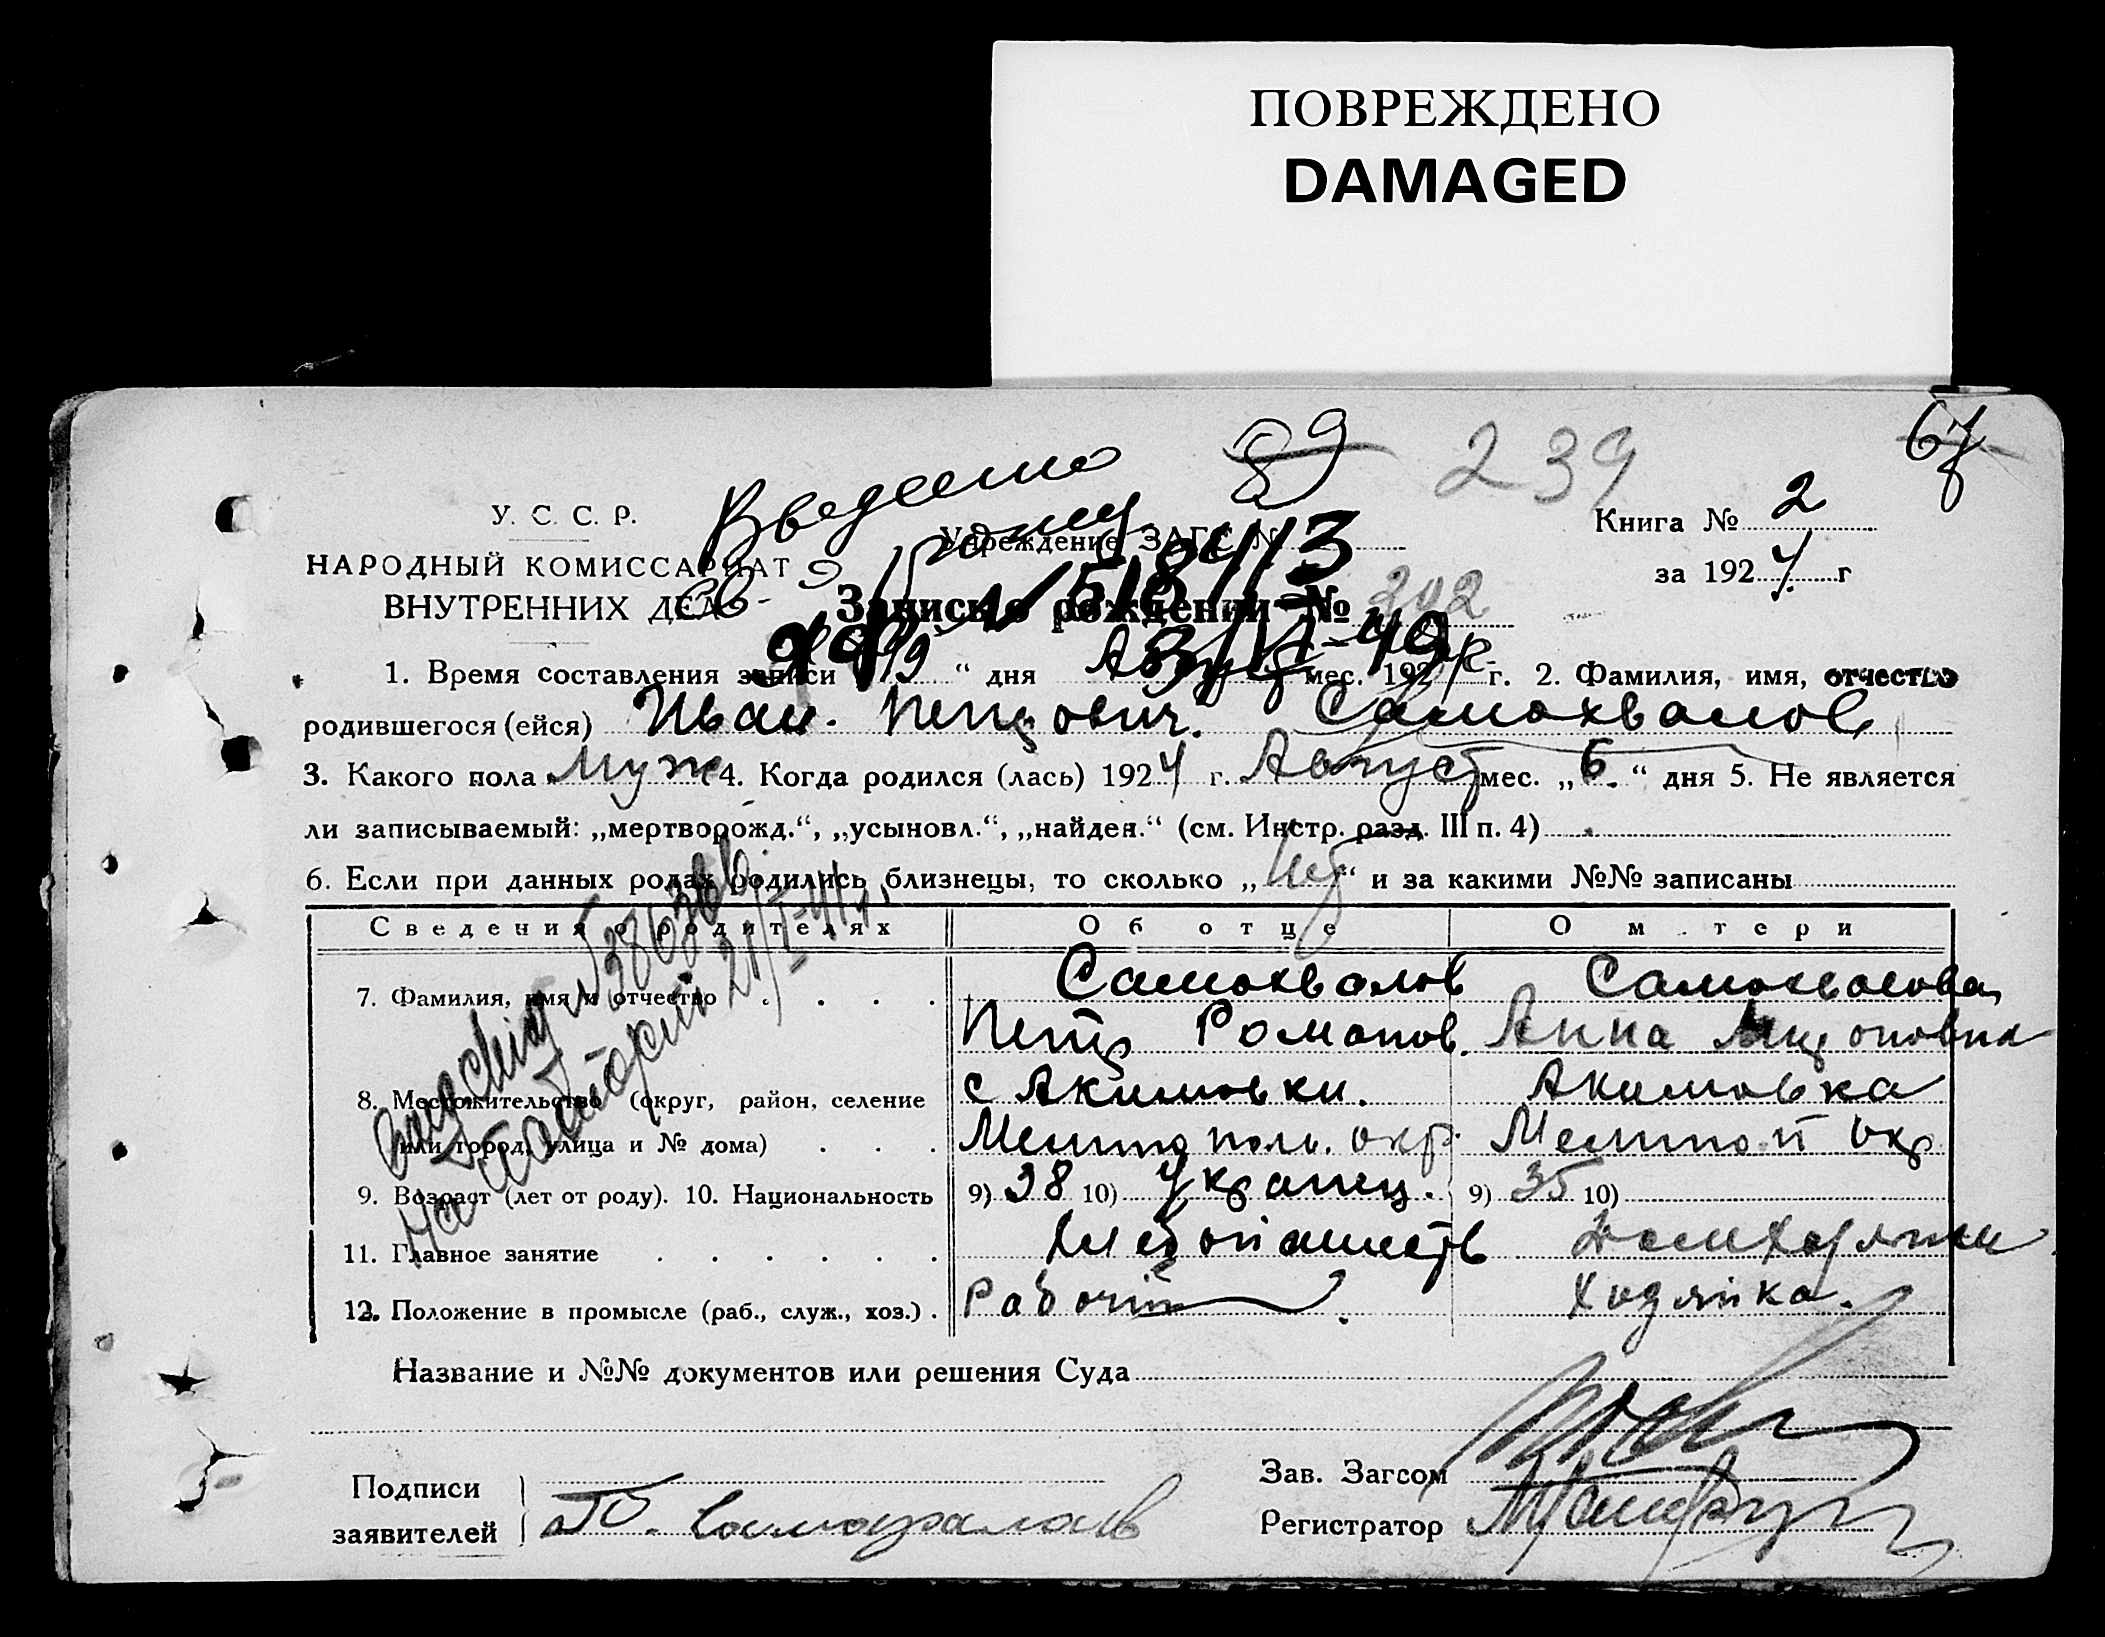 ПОВРЕЖДЕНО
DAMAGED
89 239 67
У. С. С. Р.
НАРОДНЫЙ КОМИССАРИАТ
ВНУТРЕННИХ ДЕЛ
Учреждение ЗАГС №
Книга № 2
за 1924 г
Запись о рождении № 202
1. Время составления записи „ 19 “ дня Август мес. 1924 г. 2. Фамилия, имя, отчество
родившегося (ейся) Иван. Петрович. Самохвалов
3. Какого пола муж 4. Когда родился (лась) 1924 г. Август мес. „ 6. “ дня 5. Не является
ли записываемый: „мертворожд.“, „усыновл.“, „найден.“ (см. Инстр. разд. III п. 4)
6. Если при данных родах родились близнецы, то сколько „ “ и за какими №№ записаны
Сведения о родителях Об отце О м тери
7. Фамилия, имя и отчество Самохвалов Самохвалова
Петр Романов. Анна
8. Местожительство (округ, район, селение с Акимовки. Акимовка
или город, улица и № дома) Мелитополь. окр. Мелитоп окр
9. Возраст (лет от роду). 10. Национальность 9) 38 10) Украинец. 9) 35 10)
11. Главное занятие
12. Положение в промысле (раб., служ., хоз.) Рабочий Хозяйка.
Название и №№ документов или решения Суда
Подписи
заявителей П. Самохвалов
Зав. Загсом
Регистратор